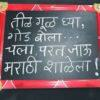 तीळ गूळ घ्या,
गोड बोला...
चला परत जाऊ
मराठी शाळेला!